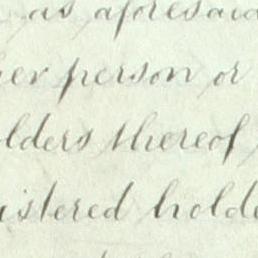 as aforesaid
er person or
lders thereof
istered holde